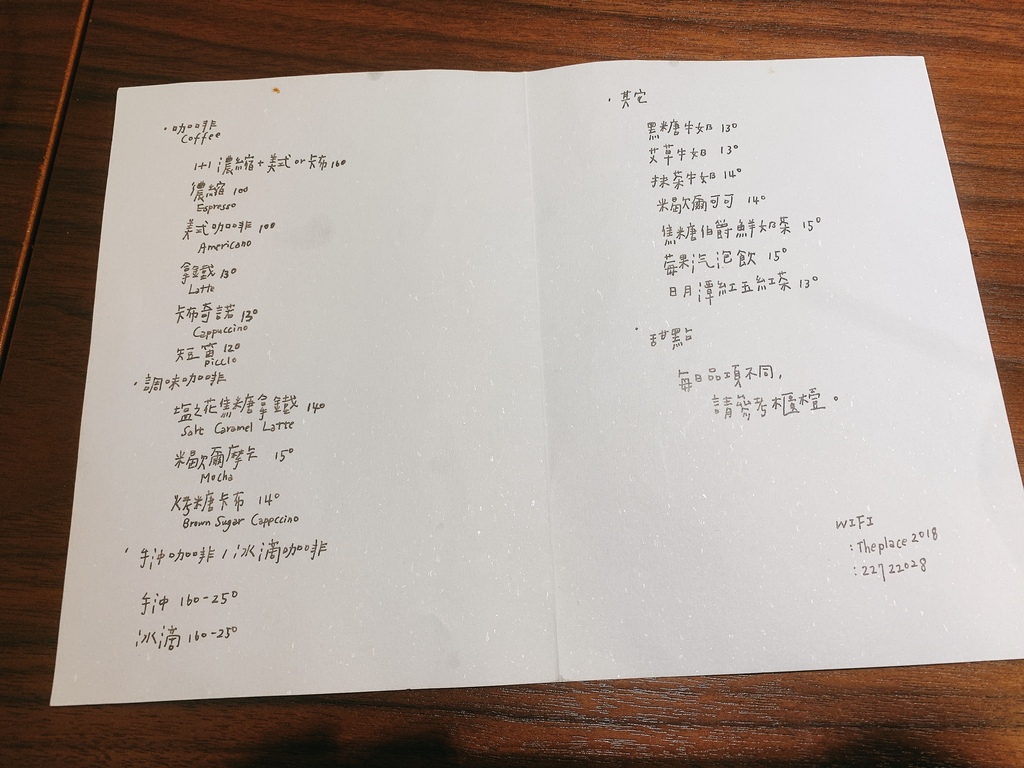 ·咖啡
Coffee
1+1 濃縮+美式 or 卡布 160
濃縮 100
Espresso
美式咖啡 100
Americano
拿鐵 130
Latte
卡布奇諾 130
Cappuccino
短笛 120
picclo
·調味咖啡
塩之花焦糖拿鐵 140
Salt Caramel Latte
米歇爾摩卡 150
Mocha
烤糖卡布 140
Brown Sugar Cappccino
·手沖咖啡/冰滴咖啡
手沖 160-250
冰滴 160-250
·其它
黑糖牛奶 130
艾草牛奶 130
抹茶牛奶 140
米歇爾可可 140
焦糖伯爵鮮奶茶 150
莓果汽泡飲 150
日月潭紅玉紅茶 130
·甜點
每日品項不同,
請參考櫃檯。
WIFI
:Theplace2018
:22722028